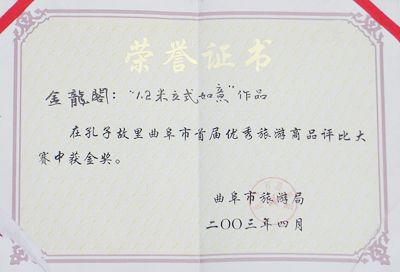 荣誉证书
金龍閣：“1.2米立式如意”作品
在孔子故里曲阜市首届优秀旅游商品评比大
赛中获金奖。
曲阜市旅游局
二〇〇三年四月